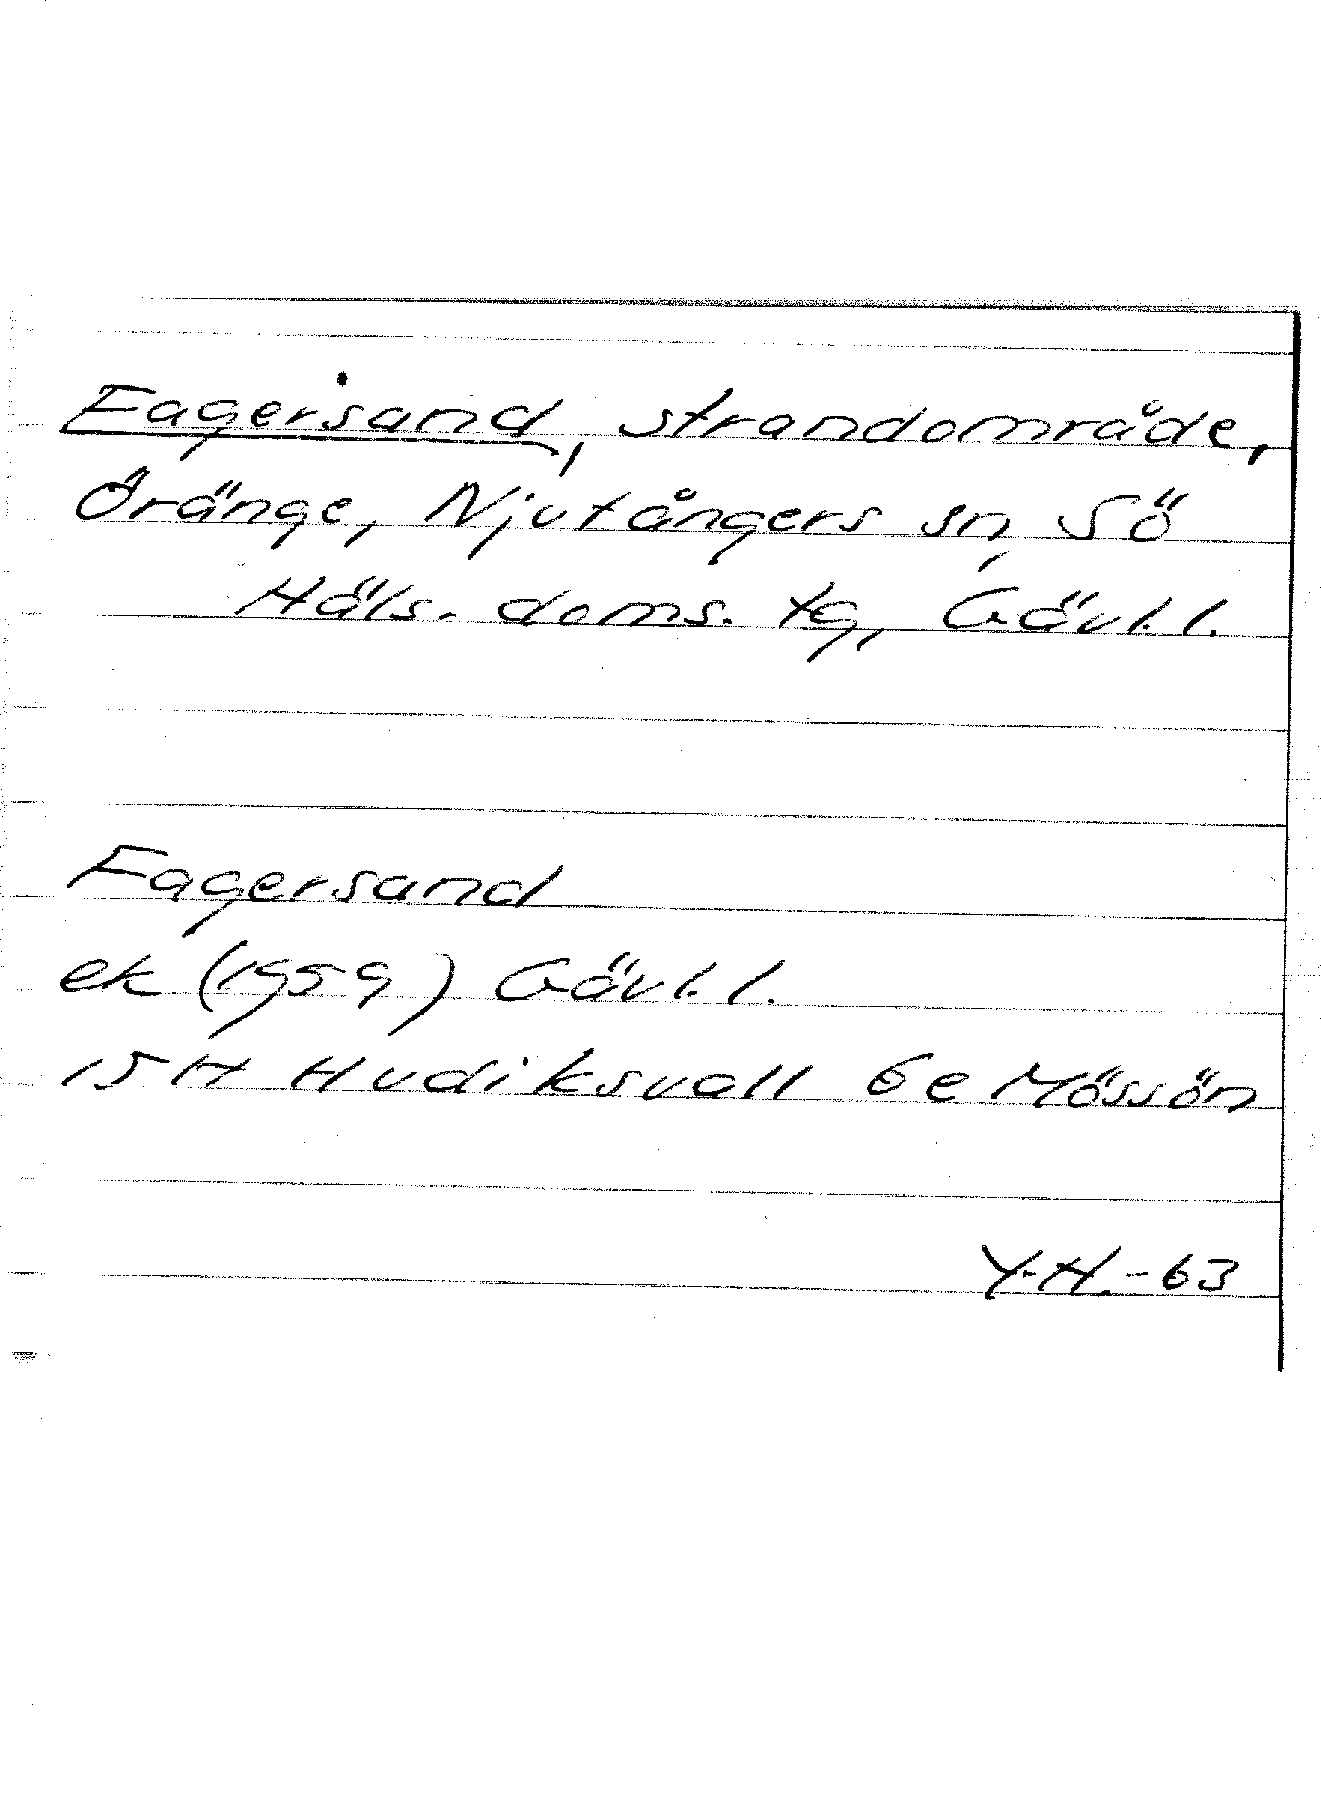 Fagersand, strandområde,
Öränge, Njutångers sn, Sö
Häls. doms. tg, Gävl. l.
Fagersand
ek (1959) Gävl. l.
15 H Hudiksvall 6e Mössön
Y.H. -63